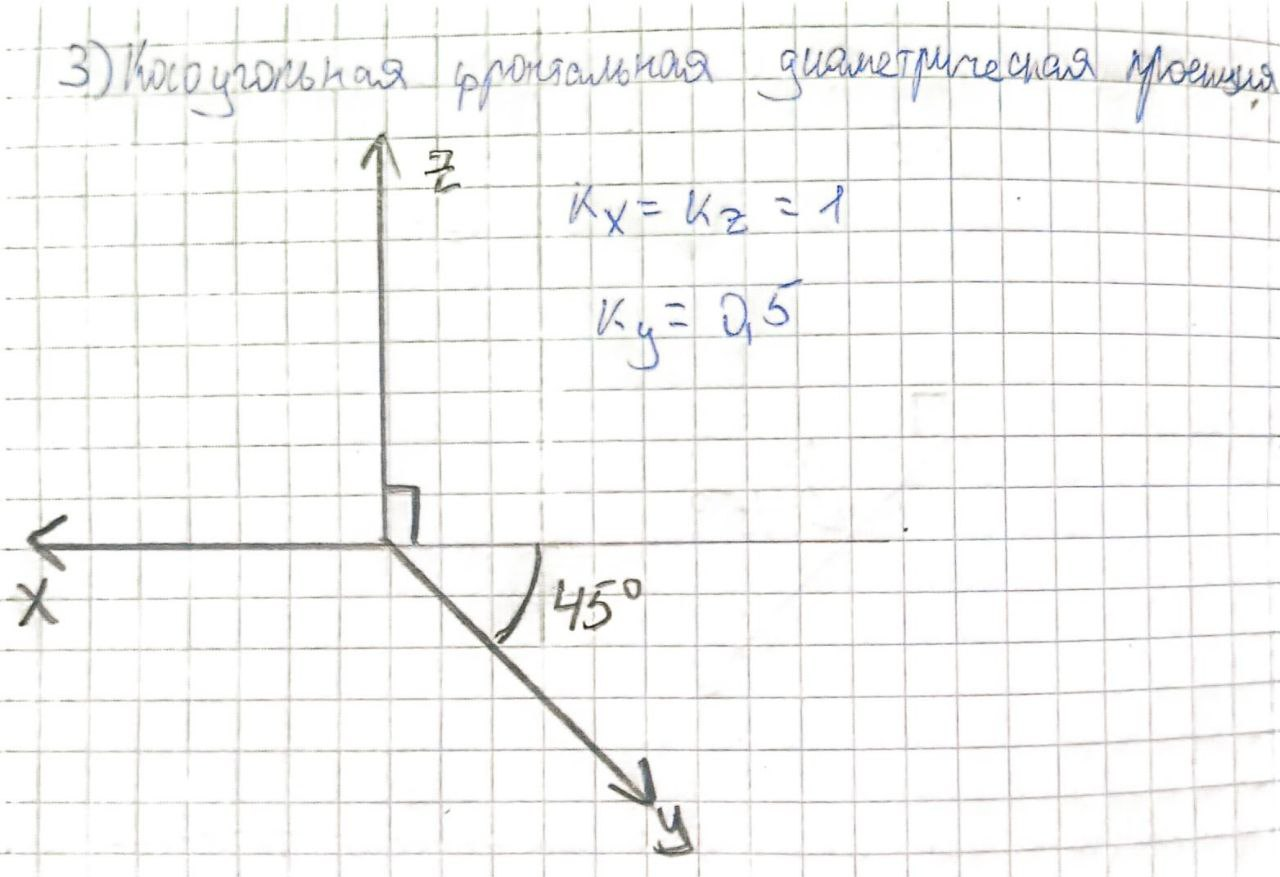 3) Косоугольная фронтальная диаметрическая проекция
Z
Kx = Kz = 1
Ky = 0,5
45°
X
y